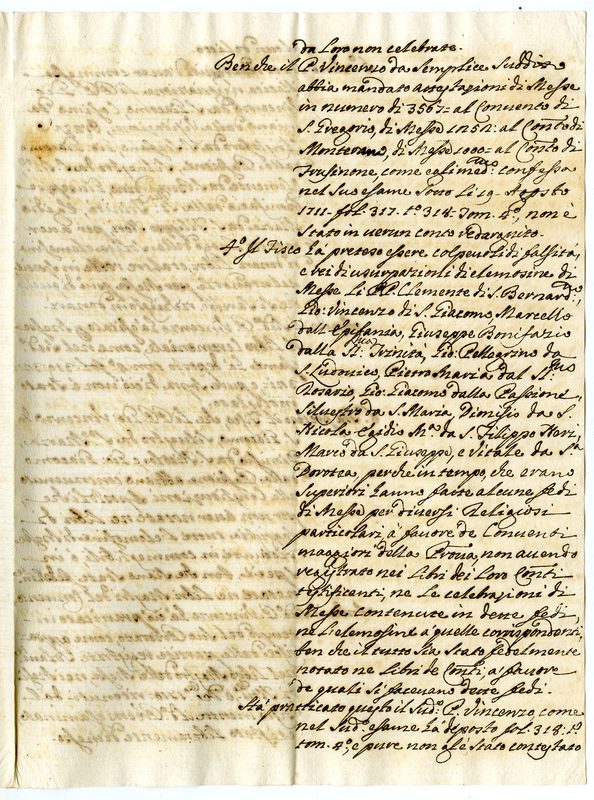 da Loro non celebrate.
Ben che il P. Vincenzo da Semplice Suddito
abbia mandato attestazioni di Messe
in numero di 3567= al Convento di
S. Gregorio, di Messe 1152: al Conto di
Monterano, di Messe 1000= al Conto di
Frusinone, come egli med.mo confessa
nel suo esame Sotto li 19. Agosto
1711. fol. 317. t.o 318. Tom. 4.o, non è
Stato in verun conto vedaranito.
4.o Il Fisco hà preteso essere colpevoli di falsità,
e rei di usurpazioni di elemosine di
Messe li PP. Clemente di S. Bernardo,
Gio: Vincenzo di S. Giacomo, Marcello
dall'Epifania, Giuseppe Bonifazio
dalla SS.ma Trinità, Gio: Pellegrino da
S. Ludovico, Pietro Maria dal SS.mo
Rosario, Gio: Giacomo dalla Passione,
Silvestro da S. Maria, Dionisio da S.
Nicola, Egidio M.a da S. Filippo Neri,
Marco da S. Giuseppe, e Vitale da S.a
Dorotea, perche in tempo, che erano
Superiori hanno fatte alcune fedi
di Messe per diversi Religiosi
particolari, à favore de Conventi
maggiori della Prov.a, non avendo
registrato nei Libri dei Loro Conti
testificanti, ne le celebrazioni di
Messe contenute in dette fedi,
ne l'elemosine à quelle corrispondenti,
ben che il tutto Sia Stato fedelmente
notato ne Libri de Conti, à favore
de quali Si facevano dette fedi.
Hà praticato questo il Sud.o P. Vincenzo, come
nel Sud.o esame hà deposto fol. 318: t.o
tom. 4.o, e pure non gl'è Stato contestato